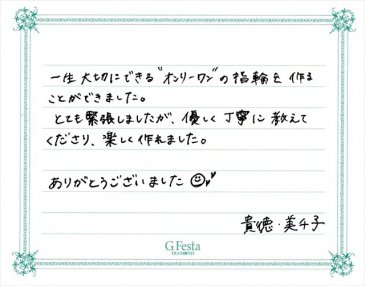 一生大切にできる"オンリーワン"の指輪を作る
ことができました。
とても緊張しましたが、優しく丁寧に教えて
くださり、楽しく作れました。
ありがとうございました
貴徳・美千子
G.Festa
DIAMOND